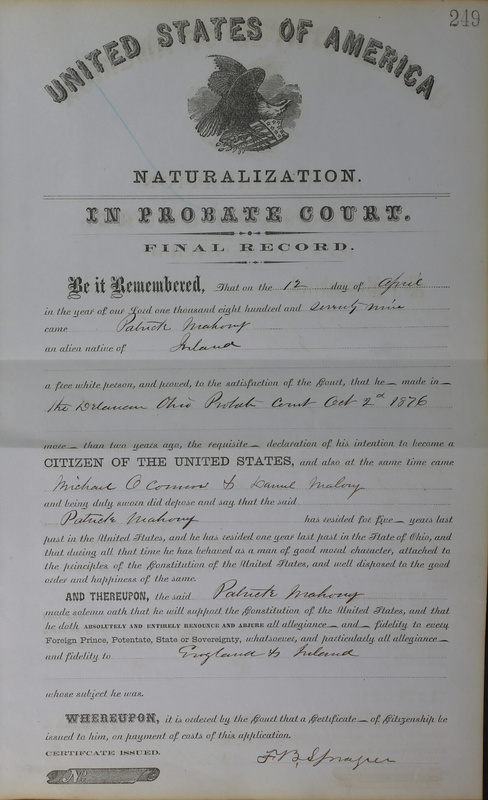 249
UNITED STATES OF AMERICA
NATURALIZATION.
IN PROBATE COURT.
FINAL RECORD.
Be it Remembered, That on the 12 day of April
in the year of our Lord one thousand eight hundred and seventy nine
came Patrick Mahony
an alien native of Ireland
a free white person, and proved, to the satisfaction of the Court, that he made in
the Delaware Ohio Probate Court Oct 2d 1876
more than two years ago, the requisite declaration of his intention to become a
CITIZEN OF THE UNITED STATES, and also at the same time came
Michael O Connor & Daniel Malony
and being duly sworn did depose and say that the said
Patrick Mahony has resided for five years last
past in the United States, and he has resided one year last past in the State of Ohio, and
that during all that time he has behaved as a man of good moral character, attached to
the principles of the Constitution of the United States, and well disposed to the good
order and happiness of the same.
AND THEREUPON, the said Patrick Mahony
made solemn oath that he will support the Constitution of the United States, and that
he doth ABSOLUTELY AND ENTIRELY RENOUNCE AND ABJURE all allegiance and fidelity to every
Foreign Prince, Potentate, State or Sovereignty, whatsoever, and particularly all allegiance
and fidelity to England & Ireland
whose subject he was.
WHEREUPON, it is ordered by the Court that a Certificate of Citizenship be
issued to him, on payment of costs of this application.
CERTIFCATE ISSUED. F. B. Sprague
No